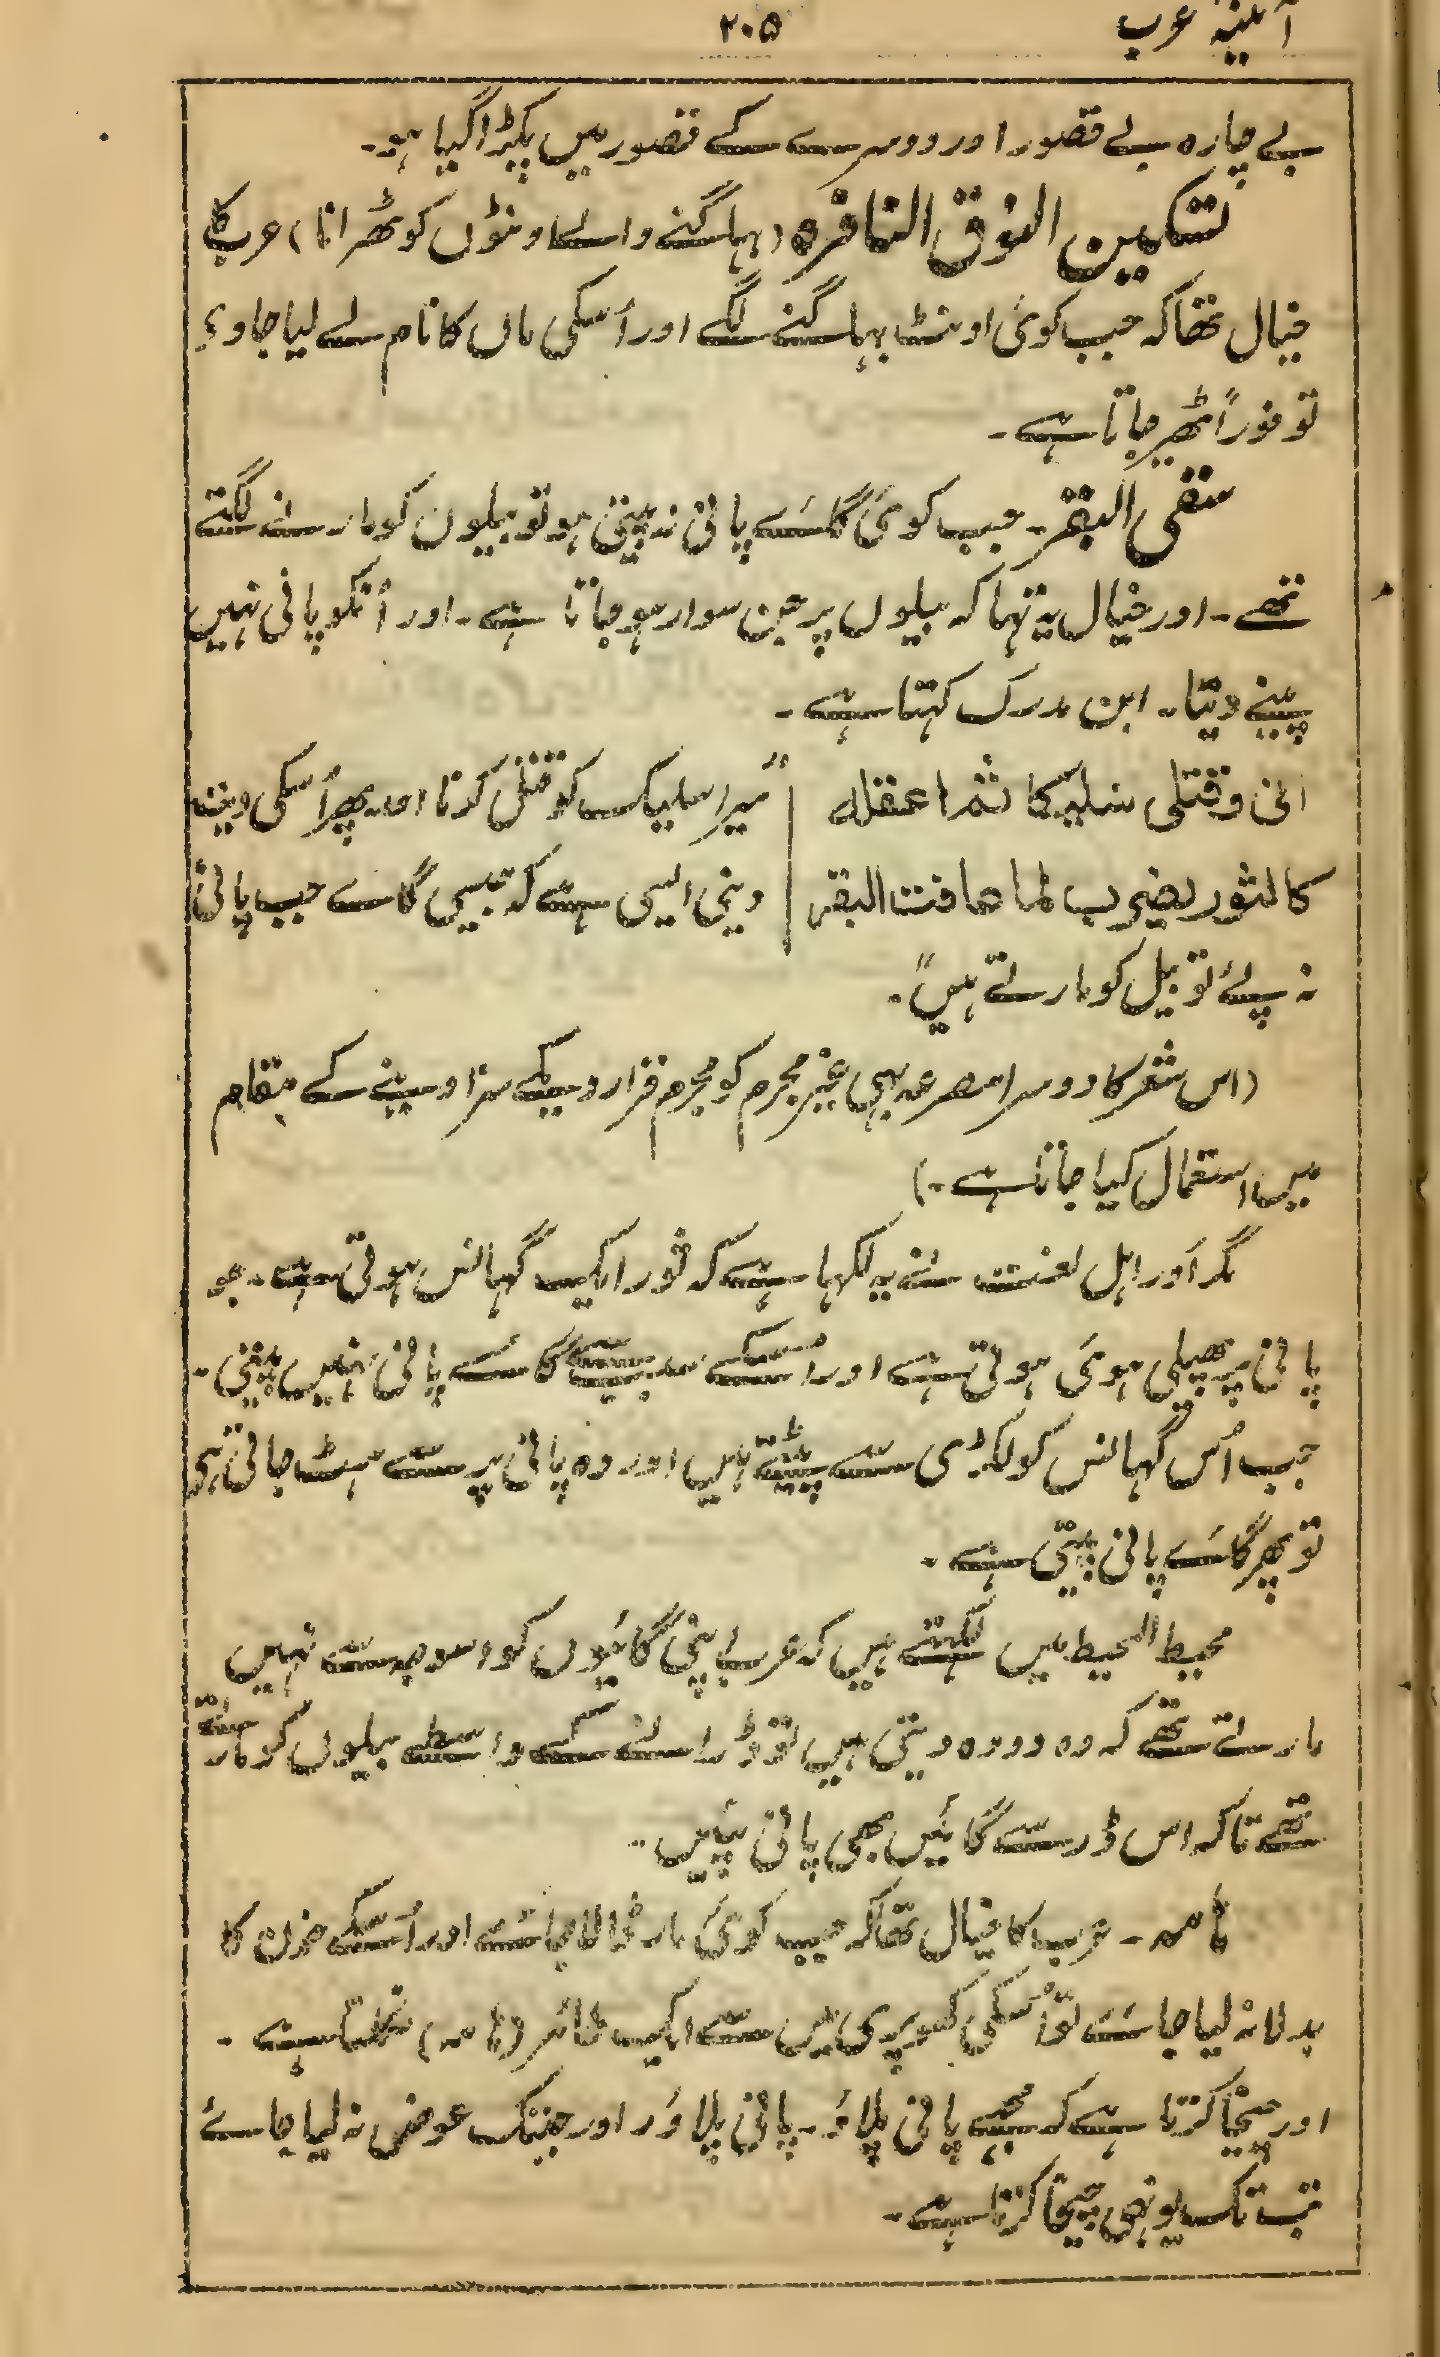 آئینہ عرب
۲۰۵
بے چارہ بے قصور اور دوسرے کے قصور میں پکڑا گیا ہو۔
تسکین النوق النافرہ (بہاگنے والے اونٹوں کو ٹھرانا) عرب کا
خیال تھا کہ جب کوئی اونٹ بہاگنے لگے اور اُسکی ماں کا نام لے لیا جاوے
تو فوراً ٹھیر جاتا ہے۔
سقی البقر۔ جب کوئی گائے پانی نہ پیتی ہو تو بیلوں کو مارنے لگتے
تھے۔ اور خیال یہ تہا کہ بیلوں پر جن سوار ہو جاتا ہے۔ اور اُنکو پانی نہیں
پینے دیتا۔ ابن مدرک کہتا ہے۔
انی وقتلی سلیکا ثم اعقلہ | "میرا سلیک کو قتل کرنا اور پھر اُسکی دیت
کالثور یضرب لما عافت البقر | دینی ایسی ہے کہ جیسی گائے جب پانی
نہ پئے تو بیل کو مارتے ہیں"۔
(اس شعر کا دوسرا مصرعہ بہی غیر مجرم کو مجرم قرار دیکے سزا دینے کے مقام
میں استعمال کیا جاتا ہے۔)
مگر اور اہل لغت نے یہ لکہا ہے کہ ثور ایک گہانس ہوتی ہے۔ جو
پانی پر پھیلی ہوئی ہوتی ہے اور اسکے سبب سے گائے پانی نہیں پیتی۔
جب اُس گہانس کو لکڑی سے پیٹتے ہیں اور وہ پانی پر سے ہٹ جاتی ہی
تو پھر گائے پانی پیتی ہے۔
محیط المحیط میں لکہتے ہیں کہ عرب اپنی گائیوں کو اسوجہ سے نہیں
مارتے تھے کہ وہ دودہ دیتی ہیں تو ڈرانے کے واسطے بیلوں کو مارتے
تھے تاکہ اس ڈر سے گائیں بھی پانی پئیں۔
ہامہ۔ عرب کا خیال تھا کہ جب کوئی مار ڈالا جائے اور اُسکے خون کا
بدلا نہ لیا جائے تو اُسکی کھوپری میں سے ایک طائر (ہامہ) نکلتا ہے۔
اور چیخا کرتا ہے کہ مجھے پانی پلاؤ۔ پانی پلاؤ۔ اور جبتک عوض نہ لیا جائے
تب تک یونہی چیخا کرتا ہے۔